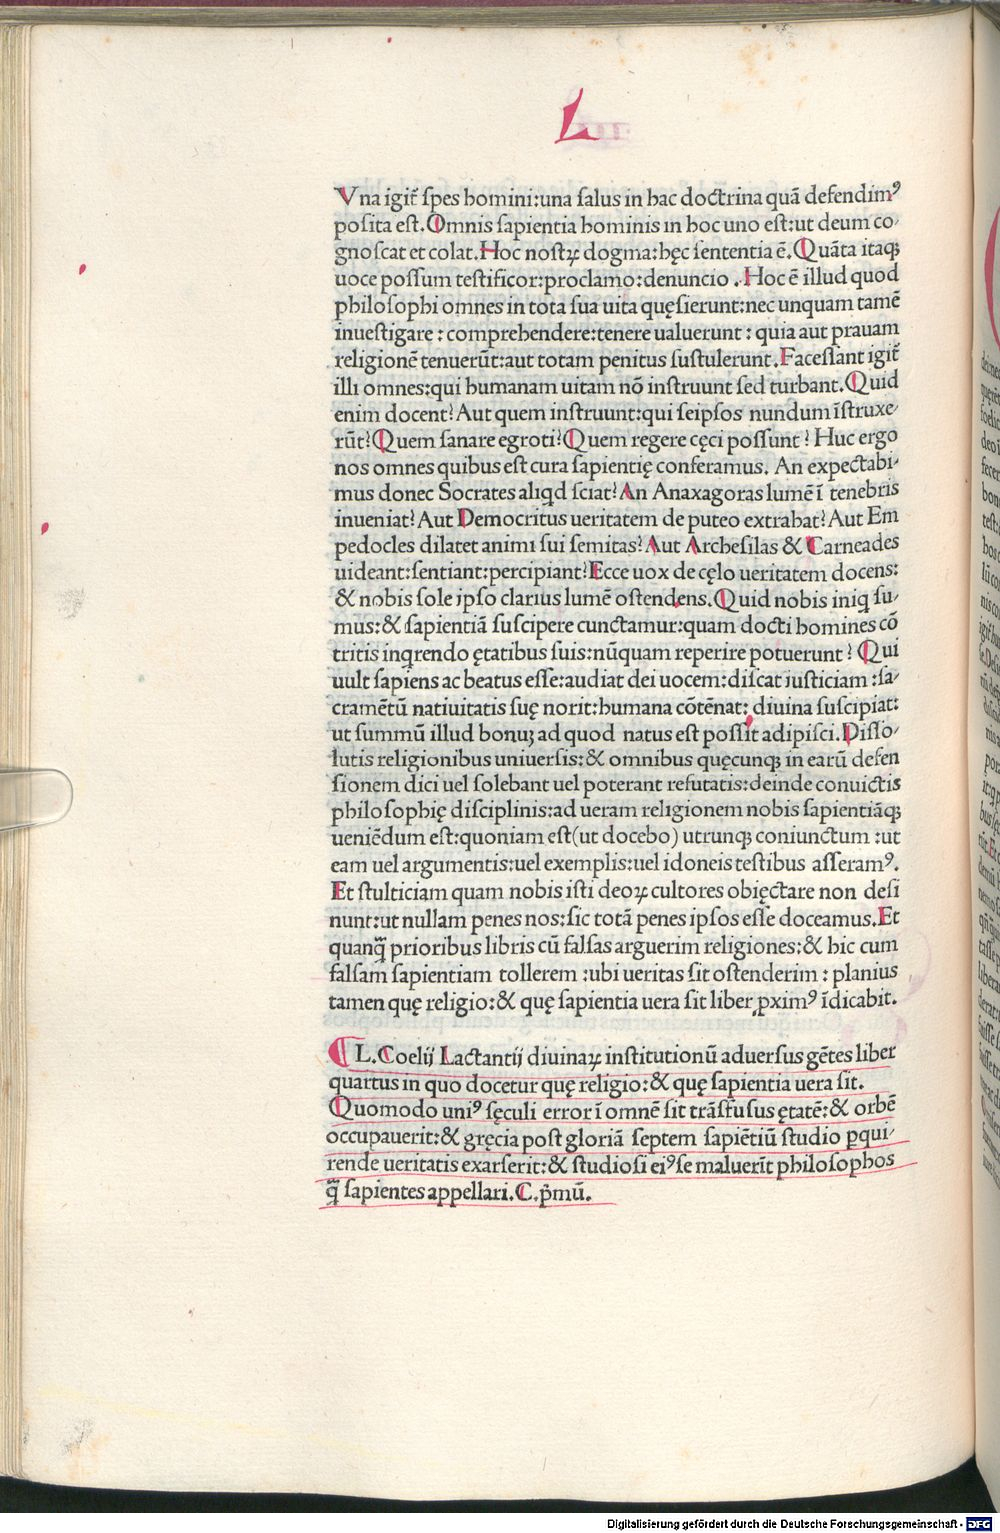 L
Vna igit᷑ ſpes homini:una ſalus in hac doctrina quā defendimꝰ
poſita eſt. Omnis ſapientia hominis in hoc uno eſt:ut deum co-
gnoſcat et colat. Hoc noſtꝝ dogma:hęc ſententia ē. Quāta itaqꝫ
uoce poſſum teſtificor:proclamo:denuncio. Hoc ē illud quod
philoſophi omnes in tota ſua uita quęſierunt:nec unquam tamē
inueſtigare: comprehendere:tenere ualuerunt: quia aut prauam
religionē tenuerūt:aut totam penitus ſuſtulerunt. Faceſſant igit᷑
illi omnes:qui humanam uitam nō inſtruunt ſed turbant. Quid
enim docent? Aut quem inſtruunt:qui ſeipſos nundum īſtruxe-
rūt? Quem ſanare egroti? Quem regere cęci poſſunt? Huc ergo
nos omnes quibus eſt cura ſapientię conferamus. An expectabi-
mus donec Socrates aliqd ſciat? An Anaxagoras lumē ī tenebris
inueniat? Aut Democritus ueritatem de puteo extrahat? Aut Em
pedocles dilatet animi ſui ſemitas? Aut Archeſilas & Carneades
uideant:ſentiant:percipiant? Ecce uox de cęlo ueritatem docens:
& nobis ſole ipſo clarius lumē oſtendens. Quid nobis iniq ſu-
mus:& ſapientiā ſuſcipere cunctamur:quam docti homines cō
tritis inqrendo ętatibus ſuis:nūquam reperire potuerunt? Qui
uult ſapiens ac beatus eſſe:audiat dei uocem:diſcat iuſticiam:ſa-
cramētū natiuitatis ſuę norit:humana cōtēnat: diuina ſuſcipiat:
ut ſummū illud bonuꝫ ad quod natus eſt poſſit adipiſci. Diſſo-
lutis religionibus uniuerſis:& omnibus quęcunqꝫ in earū defen
ſionem dici uel ſolebant uel poterant refutatis:deinde conuictis
philoſophię diſciplinis:ad ueram religionem nobis ſapientiāqꝫ
ueniēdum eſt:quoniam eſt(ut docebo) utrunqꝫ coniunctum:ut
eam uel argumentis:uel exemplis:uel idoneis teſtibus aſſeramꝰ.
Et ſtulticiam quam nobis iſti deoꝝ cultores obięctare non deſi
nunt:ut nullam penes nos:ſic totā penes ipſos eſſe doceamus. Et
quanq̃ prioribus libris cū falſas arguerim religiones:& hic cum
falſam ſapientiam tollerem:ubi ueritas ſit oſtenderim: planius
tamen quę religio:& quę ſapientia uera ſit liber ꝓximꝰ īdicabit.
L. Coelij Lactantij diuinaꝝ inſtitutionū aduerſus gētes liber
quartus in quo docetur quę religio:& quę ſapientia uera ſit.
Quomodo uniꝰ ſęculi error ī omnē ſit trāſfuſus ętatē:& orbē
occupauerit:& gręcia poſt gloriā ſeptem ſapiētiū ſtudio ꝑqui-
rende ueritatis exarſerit:& ſtudioſi eiꝰ ſe maluerīt philoſophos
q̃ ſapientes appellari. C. p̄mū.
Digitalisierung gefördert durch die Deutsche Forschungsgemeinschaft - DFG